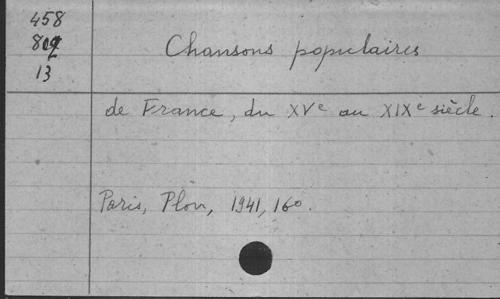 458
802
13
Chansons populaires
de France, du XVe au XIXe siècle.
Paris, Plon, 1941, 16o.